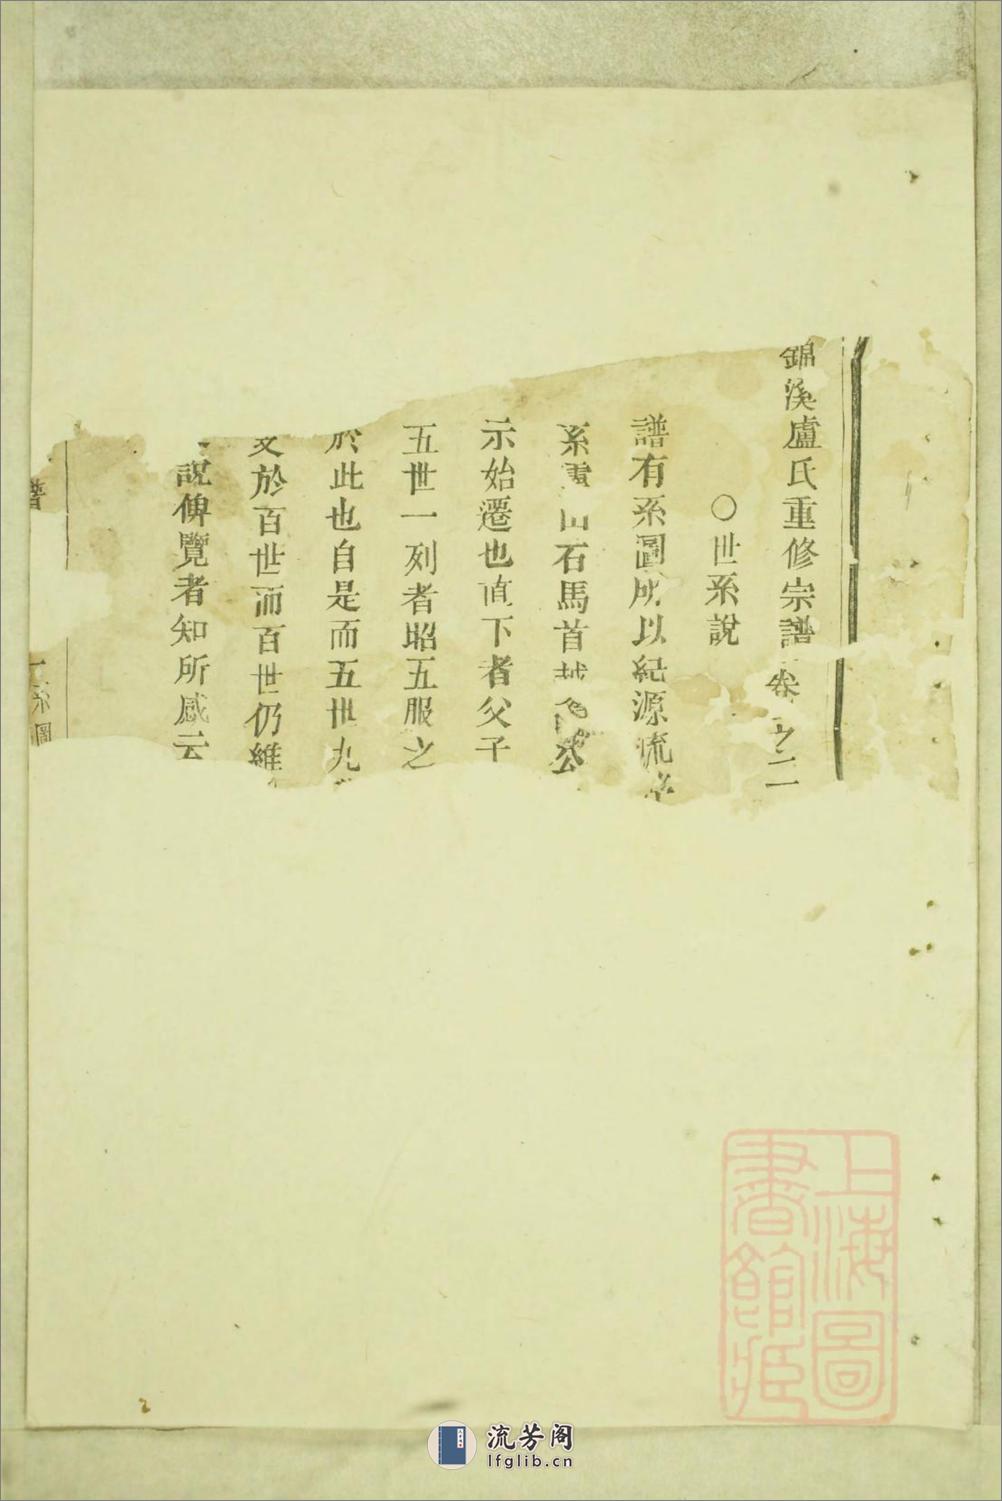 錦溪盧氏重修宗譜卷之二
○世系說
譜有系圖所以紀源流
系 石馬首 公
示始遷也直下者父子
五世一列者昭五服之
於此也自是而五世九
於百世而百世仍維
說俾覽者知所感云
譜
系圖
上海圖書館藏
流芳阁
lfglib.cn